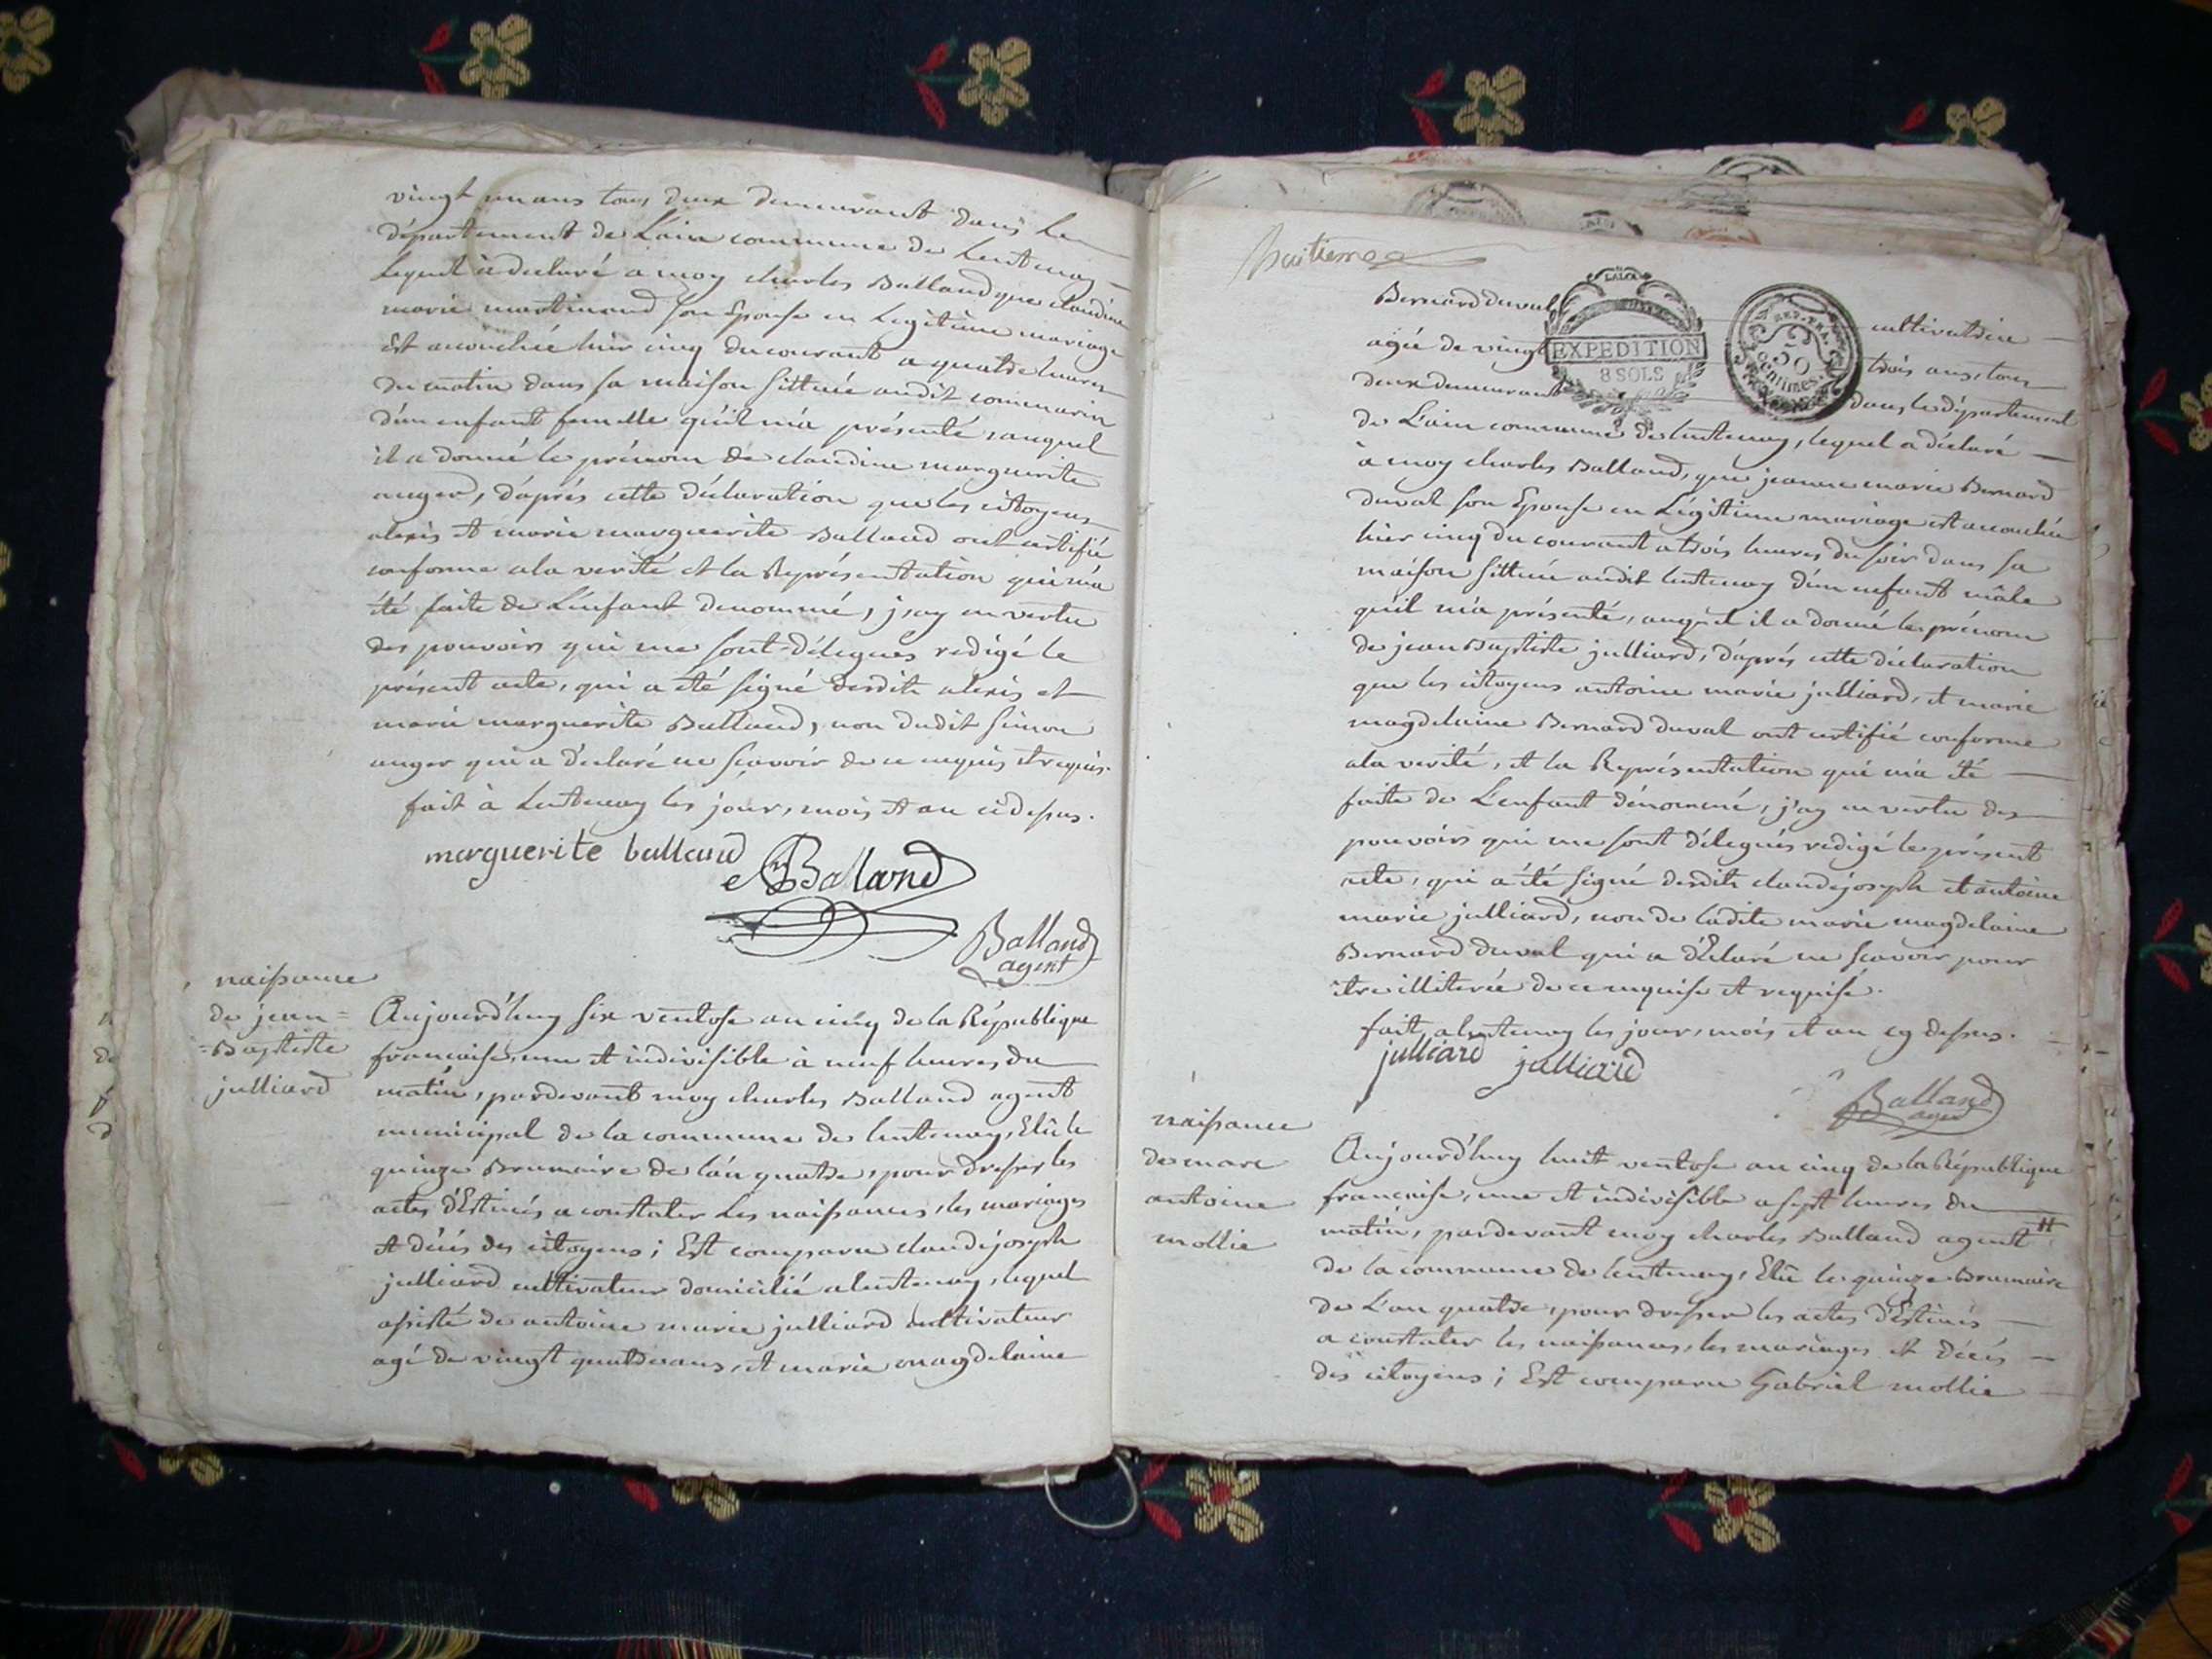 vingt un ans tous deux demeurant dans le
département de Lain commune de Lentenay
lequel à declaré a moy charles Balland que claudine
marie martinand son Epouse en Legitime mariage
Est acouchée hier cinq du courant a quatre heures
du matin dans sa maison sittuée audit
d'un enfant femelle qu'il m'a présenté, auquel
il a donné le prénom de claudine marguerite
auger, d'aprés cette déclaration que les citoyens
alexis et marie marguerite Balland ont certifié
conforme a la verité et la Représentation qui m'a
été faite de L'enfant denommé, j,ay en vertu
des pouvoirs qui me sont délegués redigé le
présent acte, qui a été signé desdits alexis et
marie marguerite Balland, non dudit simon
auger qui a déclaré ne scavoir de ce enquis et requis.
fait à Lentenay les jour, mois et an ci dessus.
marguerite balland
Balland
Balland
agent
naissance
de jean=
=Baptiste
julliard
Aujourd'huy six ventose an cinq de la République
francaise, une et indivisible à neuf heures du
matin, pardevant moy charles Balland agent
municipal de la commune de lentenay, Elû le
quinze Brumaire de l'an quatre, pour dresser les
actes d'Estinés a constater Les naissances, les mariages
et décés des citoyens; Est comparu claudejoseph
julliard cultivateur domicilié a lentenay, lequel
assisté de antoine marie julliard cultivateur
agé de vingt quatre ans, et marie magdelaine
huitieme
Bernard duval cultivatrice
agée de vingt trois ans, tous
deux demeurant dans le département
EXPEDITION
8 SOLS
REP. FRA.
50
centimes
de Lain commune de lentenay, lequel a déclaré
à moy charles Balland, que jeanne marie Bernard
duval son Epouse en Légitime mariage est acouchée
hier cinq du courant a trois heures du soir dans sa
maison sittuée audit lentenay d'un enfant mâle
qu'il m'a présenté, auquel il a donné le prénom
de jean Baptiste julliard, d'aprés cette déclaration
que les citoyens antoine marie julliard, et marie
magdelaine Bernard duval ont certifié conforme
a la verité, et la Représentation qui m'a été
faite de L'enfant dénommé, j'ay en vertu des
pouvoirs qui me sont délegués redigé le présent
acte, qui a été signé desdits claudejoseph et antoine
marie julliard, non de ladite marie magdelaine
Bernard duval qui a d'Eclaré ne scavoir pour
être illiterée de ce enquise et requise.
fait, a lentenay les jour, mois et an cy dessus.
julliard julliard
Balland
agent
naissance
de marc
antoine
mollie
Aujourd'huy huit ventose an cinq de la République
francaise, une et indivisible a sept heures du
matin, pardevant moy charles Balland agent #
de la commune de lentenay, Elû le quinze Brumaire
de L'an quatre, pour dresser les actes d'Estinés
a constater les naissances, les mariages et décés
des citoyens; Est comparu Gabriel mollie